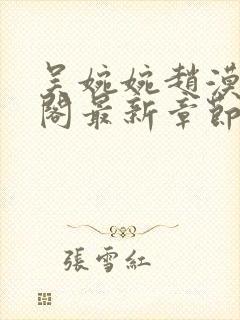 吴婉婉趙漠
閣最新章節
張雪紅